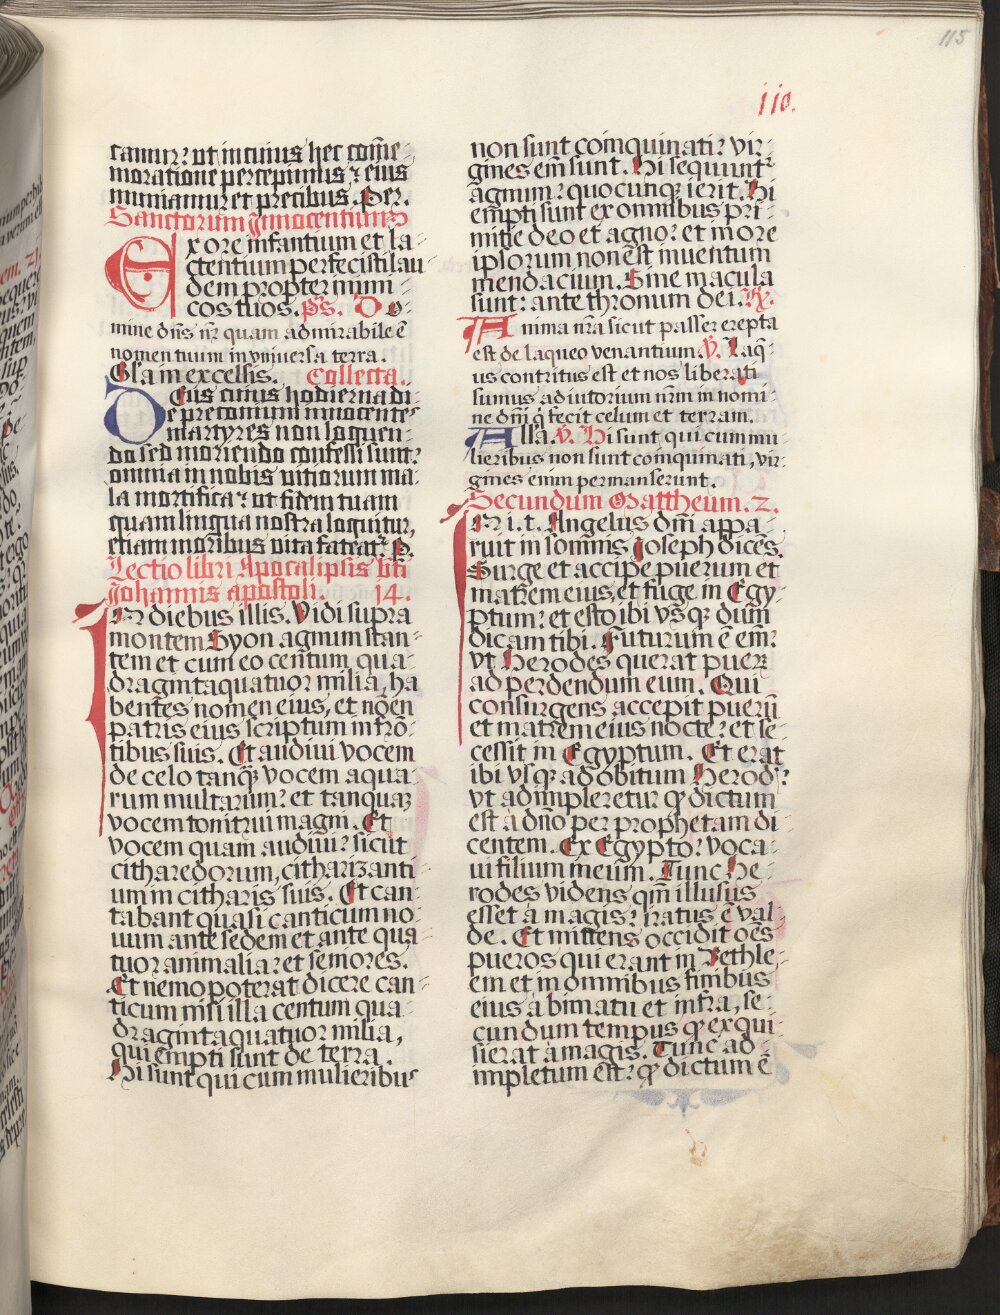 115
110.
tamur: ut in cuius hec com̄e
moratione percepimus ⁊ eius
muniamur et precibus. Per.
Sanctorum Innocentium
Ex ore infantium et la
ctentium perfecisti lau
dem propter inimi
cos tuos. p̄s. Do
mine dn̄s nr̄ quam admirabile ē
nomen tuum in vniuersa terra.
Gl̄a in excelsis. Collecta.
Deus cuius hodierna di
e preconium innocentes
martyres non loquen
do sed moriendo confessi sunt:
omnia in nobis vitiorum ma
la mortifica: ut fidem tuam
quam lingua nostra loquitur,
etiam moribus vita fateat᷑. P.
Lectio libri Apocalipsis bt̄i
Johannis apostoli. 14.
In diebus illis. Vidi supra
montem Syon agnum stan
tem et cum eo centum qua
dragintaquatuor milia, ha
bentes nomen eius, et nom̄en
patris eius scriptum in frō
tibus suis. Et audiui vocem
de celo tanqꝫ vocem aqua
rum multarum: et tanquaꝫ
vocem tonitrui magni. Et
vocem quam audiui: sicut
citharedorum, citharizanti
um in citharis suis. Et can
tabant quasi canticum no
uum ante sedem et ante qua
tuor animalia: et seniores.
Et nemo poterat dicere can
ticum nisi illa centum qua
dragintaquatuor milia,
qui empti sunt de terra.
Hi sunt qui cum mulieribus
non sunt coinquinati: vir
gines em̄ sunt. Hi sequunt᷑
agnum: quocunqꝫ ierit. Hi
empti sunt ex omnibus pri
mitie deo et agno: et in ore
ipsorum non est inuentum
mendacium. Sine macula
sunt: ante thronum dei. R̷.
Anima nr̄a sicut passer erepta
est de laqueo venantium. V̷. Laq̄
us contritus est et nos liberati
sumus adiutorium nr̄m in nomi
ne dn̄i q̇ fecit celum et terram.
All̄a. V̷. Hi sunt qui cum mu
lieribus non sunt coinquinati, vir
gines enim permanserunt.
Secundum Mattheum. 2.
In i. t. Angelus dn̄i appa
ruit in somnis Joseph dicēs.
Surge et accipe puerum et
matrem eius, et fuge in Egy
ptum: et esto ibi vsqꝫ dum
dicam tibi. Futurum ē em̄:
vt Herodes querat pueꝝ
ad perdendum eum. Qui
consurgens accepit puerū
et matrem eius nocte: et se
cessit in Egyptum. Et erat
ibi vsqꝫ ad obitum Herod̄:
vt adimpleretur qꝫ dictum
est à dn̄o per prophetam di
centem. Ex Egypto: voca
ui filium meum. Tunc He
rodes videns qm̄ illusus
esset à magis: iratus ē val
de. Et mittens occidit oēs
pueros qui erant in Bethle
em et in omnibus finibus
eius à bimatu et infra, se
cundum tempus qꝫ exqui
sierat à magis. Tunc ad
impletum est: qꝫ dictum ē